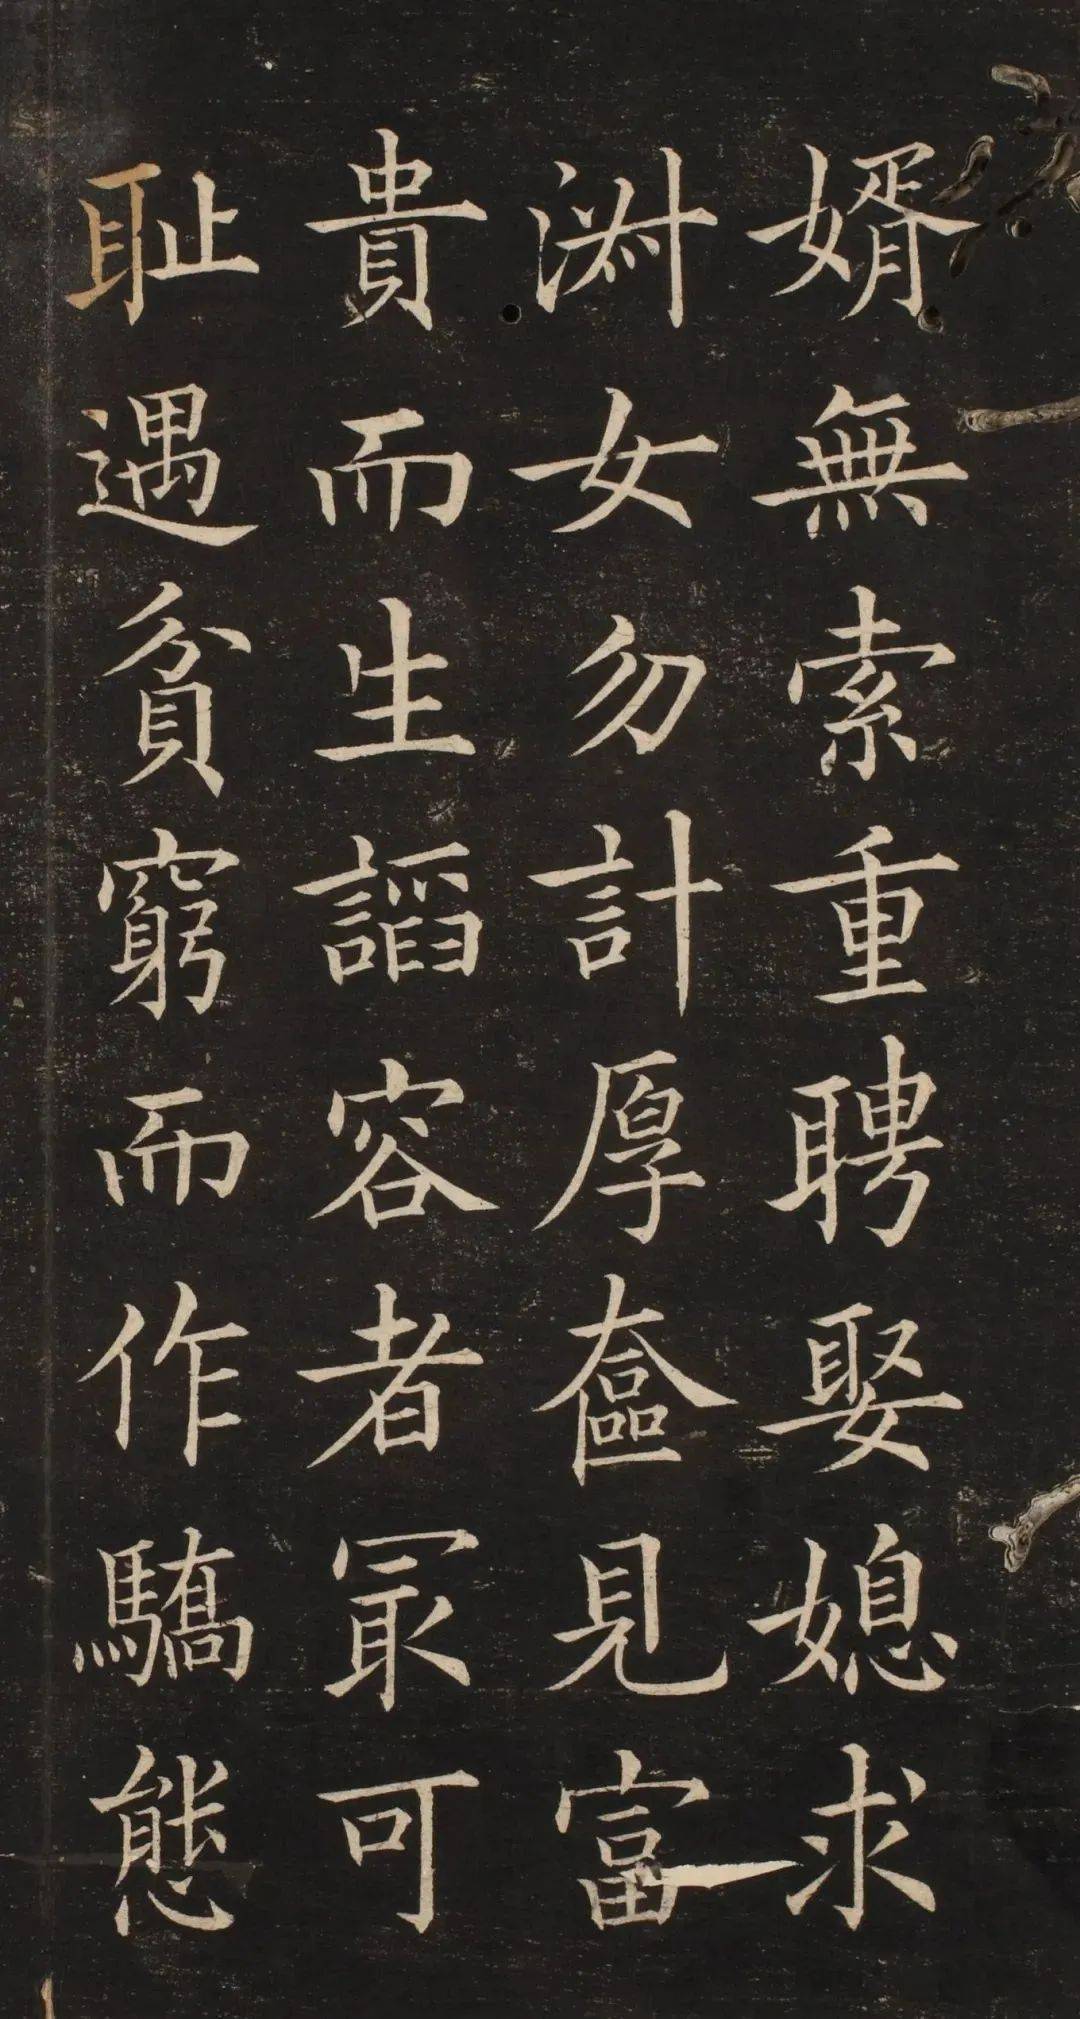 婿無索重聘娶媳求
淑女勿計厚奩見富
貴而生謟容者冣可
耻遇貧窮而作驕態